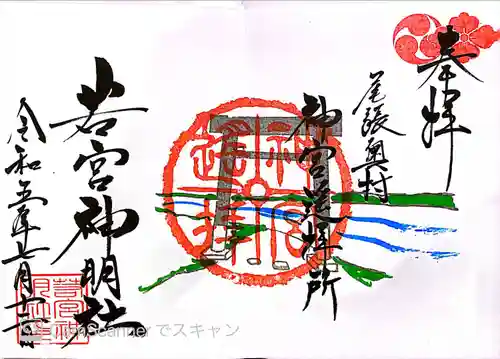 奉拝
尾張奥村
神宮遥拝所
神宮
遥拝
若宮神明社
令和五年七月十一日
でスキャン